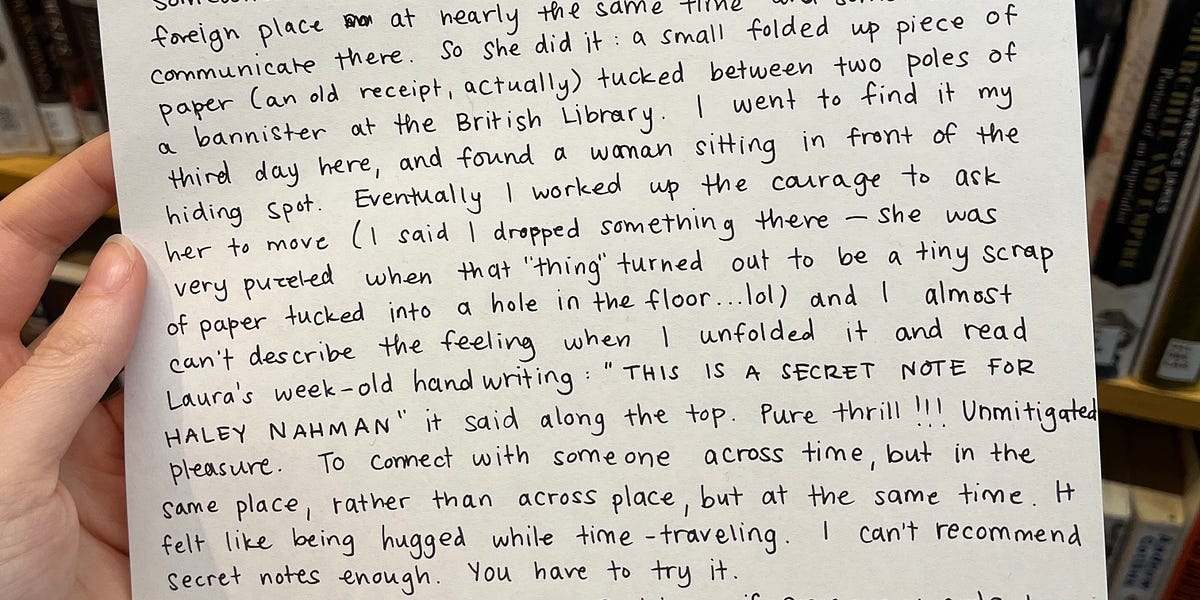 foreign place at nearly the same time
communicate there. So she did it : a small folded up piece of
paper (an old receipt, actually) tucked between two poles of
a bannister at the British Library. I went to find it my
third day here, and found a woman sitting in front of the
hiding spot. Eventually I worked up the courage to ask
her to move (I said I dropped something there — she was
very puzzled when that "thing" turned out to be a tiny scrap
of paper tucked into a hole in the floor...lol) and I almost
can't describe the feeling when I unfolded it and read
Laura's week-old handwriting : "THIS IS A SECRET NOTE FOR
HALEY NAHMAN" it said along the top. Pure thrill!!! Unmitigated
pleasure. To connect with someone across time, but in the
same place, rather than across place, but at the same time. It
felt like being hugged while time-traveling. I can't recommend
secret notes enough. You have to try it.
CHURCHILL AND EMPIRE